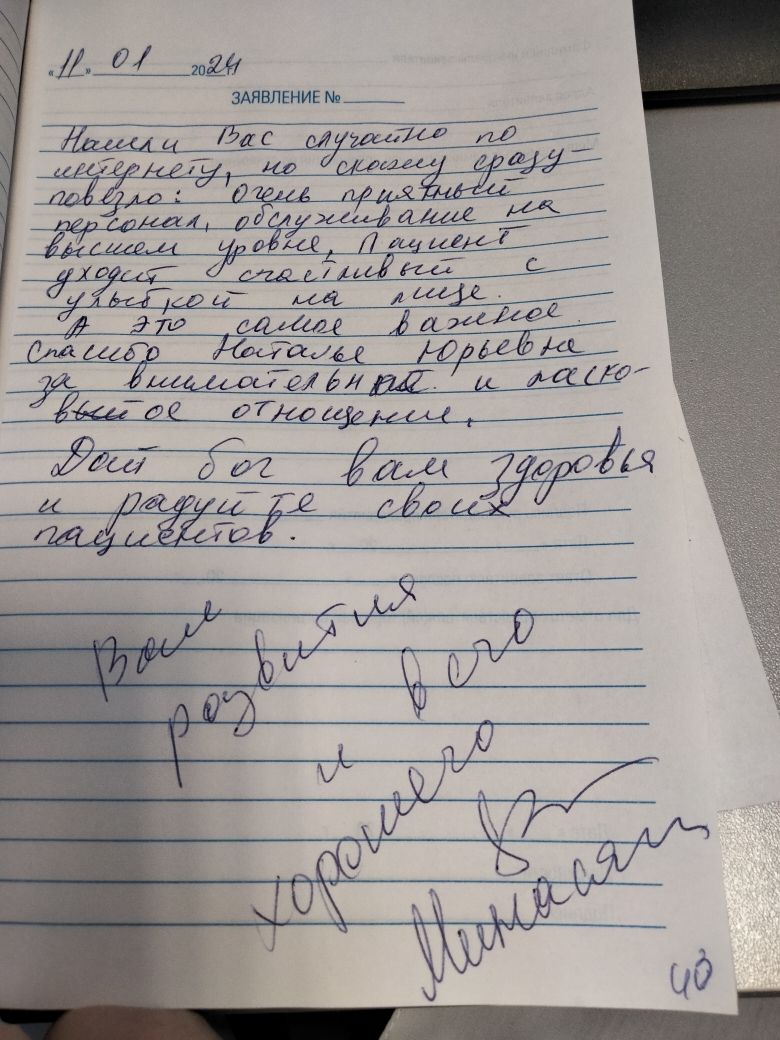 «11» 01 2024
ЗАЯВЛЕНИЕ №
Нашли Вас случайно по
интернету, но скажу сразу –
повезло: Очень приятный
персонал, обслуживание на
высшем уровне, Пациент
уходит счастливый с
улыбкой на лице.
А это самое важное.
Спасибо Наталье Юрьевне
за внимательн и ласко-
вое отношение.
Дай бог вам здоровья
и радуйте своих
пациентов.
Вам
развития
и всего
хорошего
Минасян